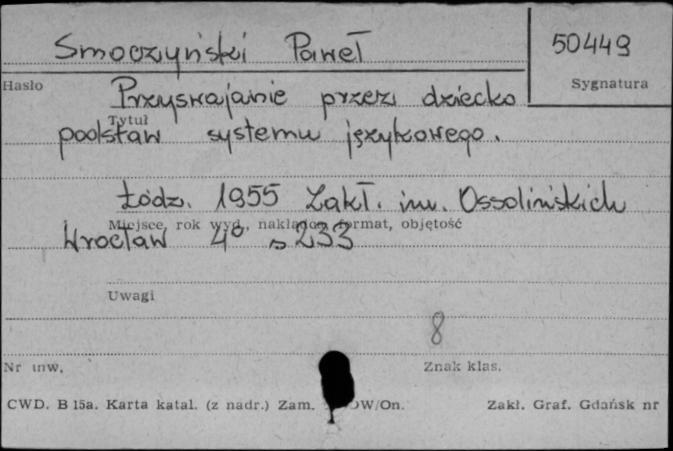 Smoczyński Paweł
50449
Hasło
Sygnatura
Przyswajanie przez dziecko
Tytuł
podstaw systemu językowego.
Łódz. 1955 Zakł. im. Ossolińskich
Miejsce, rok wyd., nakładca, format, objętość
Wrocław 4° s 233
Uwagi
8
Nr inw.
Znak klas.
CWD. B 15a. Karta katal. (z nadr.) Zam. OW/On.
Zakł. Graf. Gdańsk nr